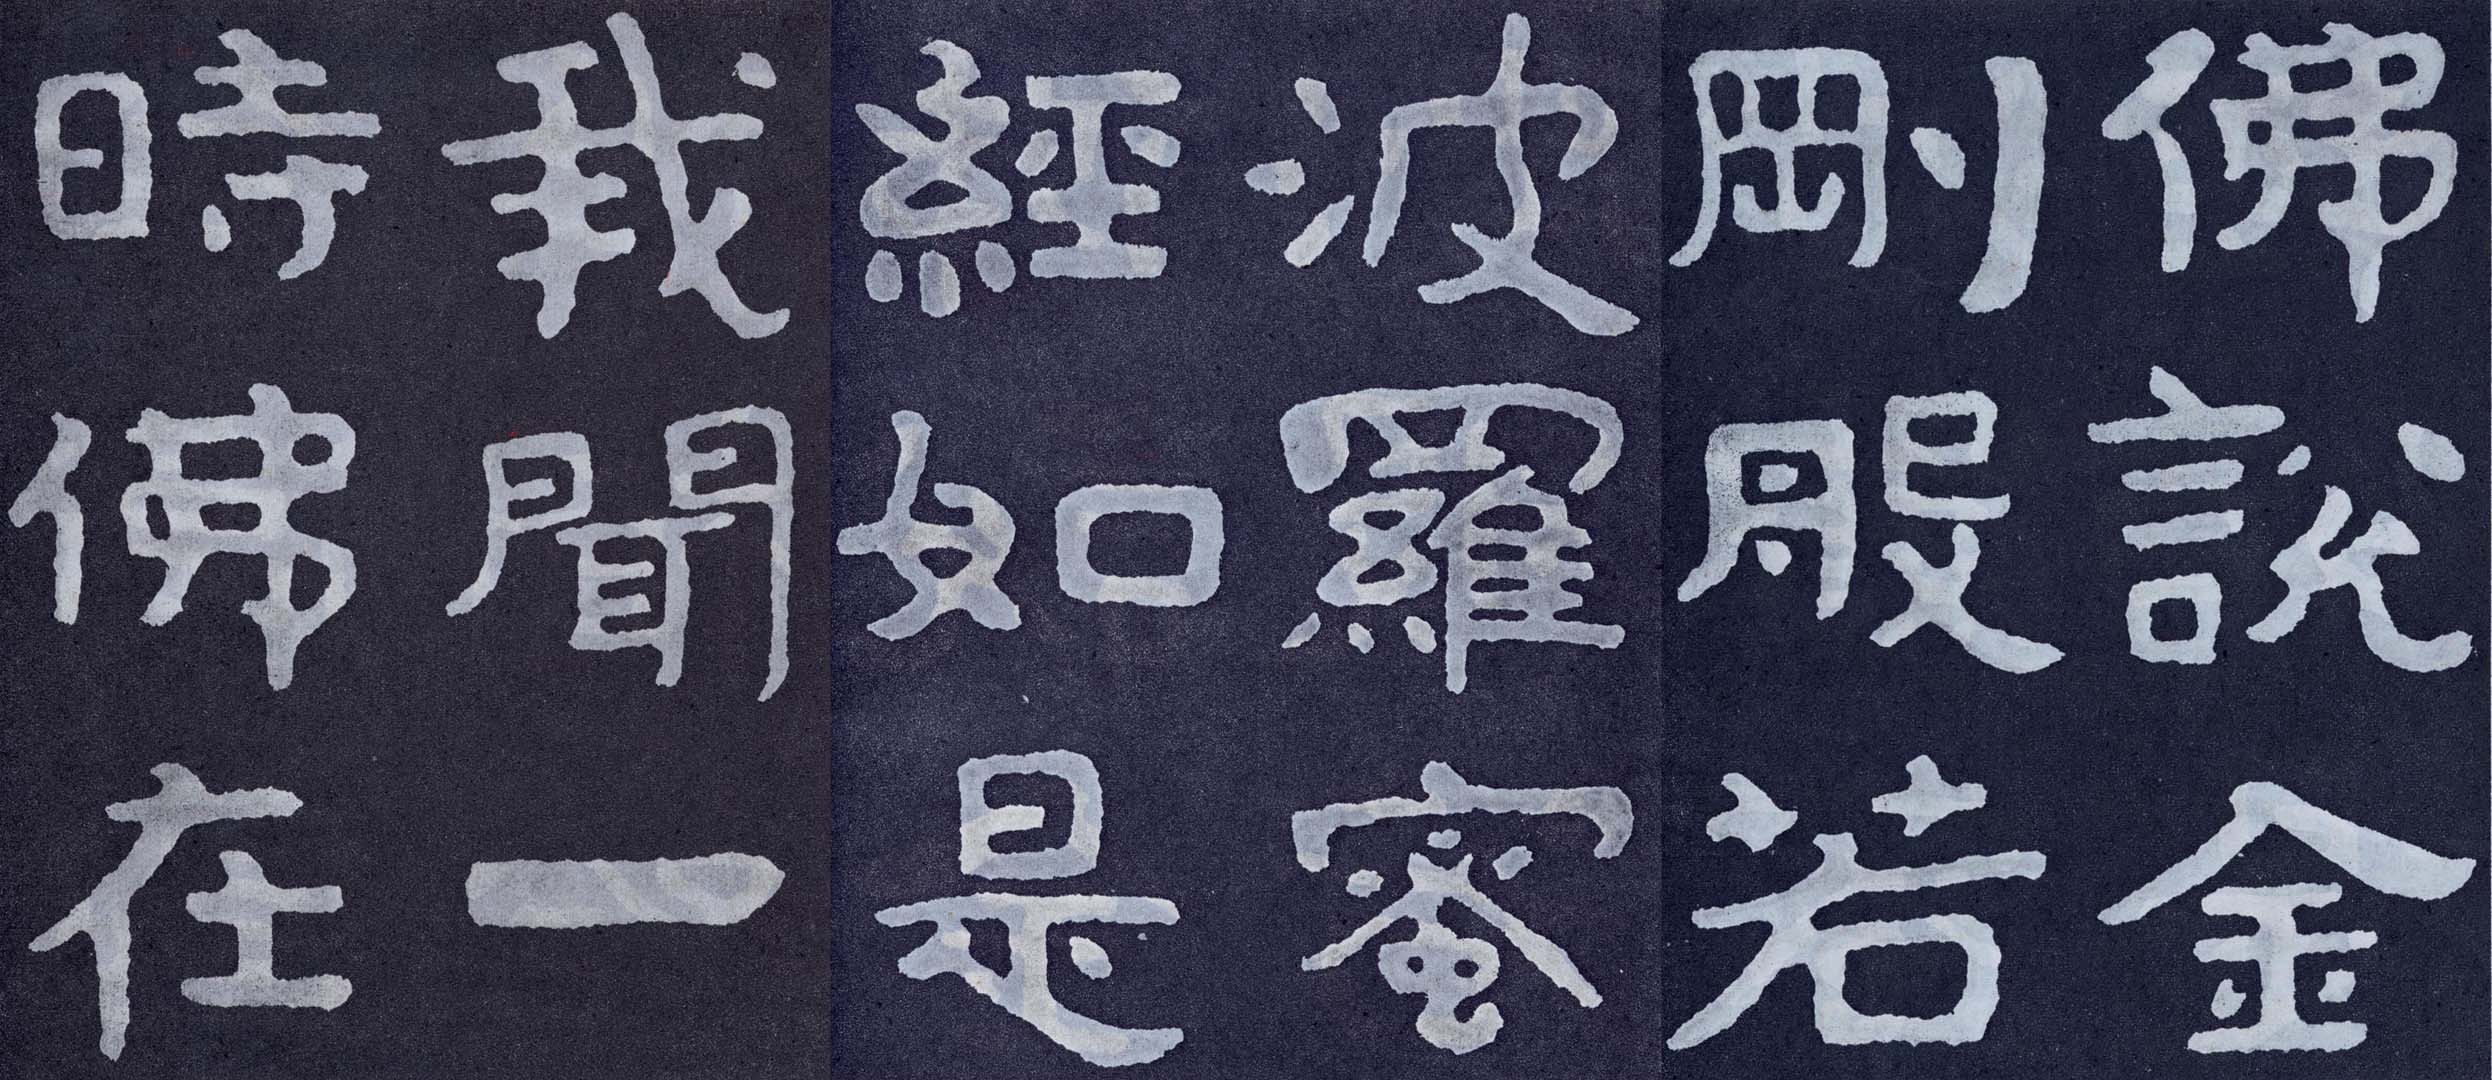 佛說金
剛般若
波羅蜜
經如是
我聞一
時佛在